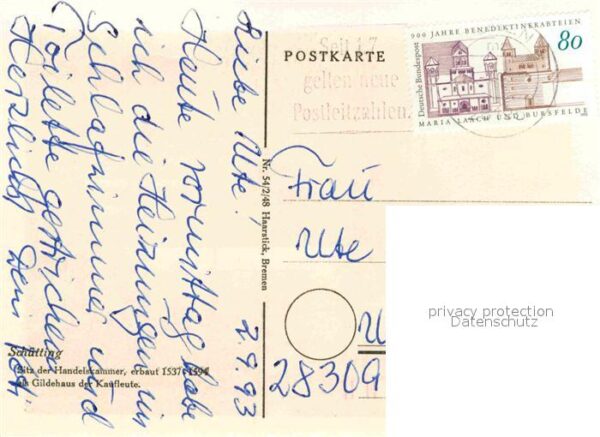 Liebe Ute! 2.9.93
Heute vormittag habe
ich die Heizungen im
Schlafzimmer und
Toilette gestrichen
Herzlichst Dein
Schütting
(Sitz der Handelskammer, erbaut 1537-1594
als Gildehaus der Kaufleute.
Nr. 54/2/48 Haarstick, Bremen
POSTKARTE
Seit 1.7.
gelten neue
Postleitzahlen.
900 JAHRE BENEDIKTINERABTEIEN
80
Deutsche Bundespost
MARIA LAACH UND BURSFELDE
Frau
Ute
28309
privacy protection
Datenschutz